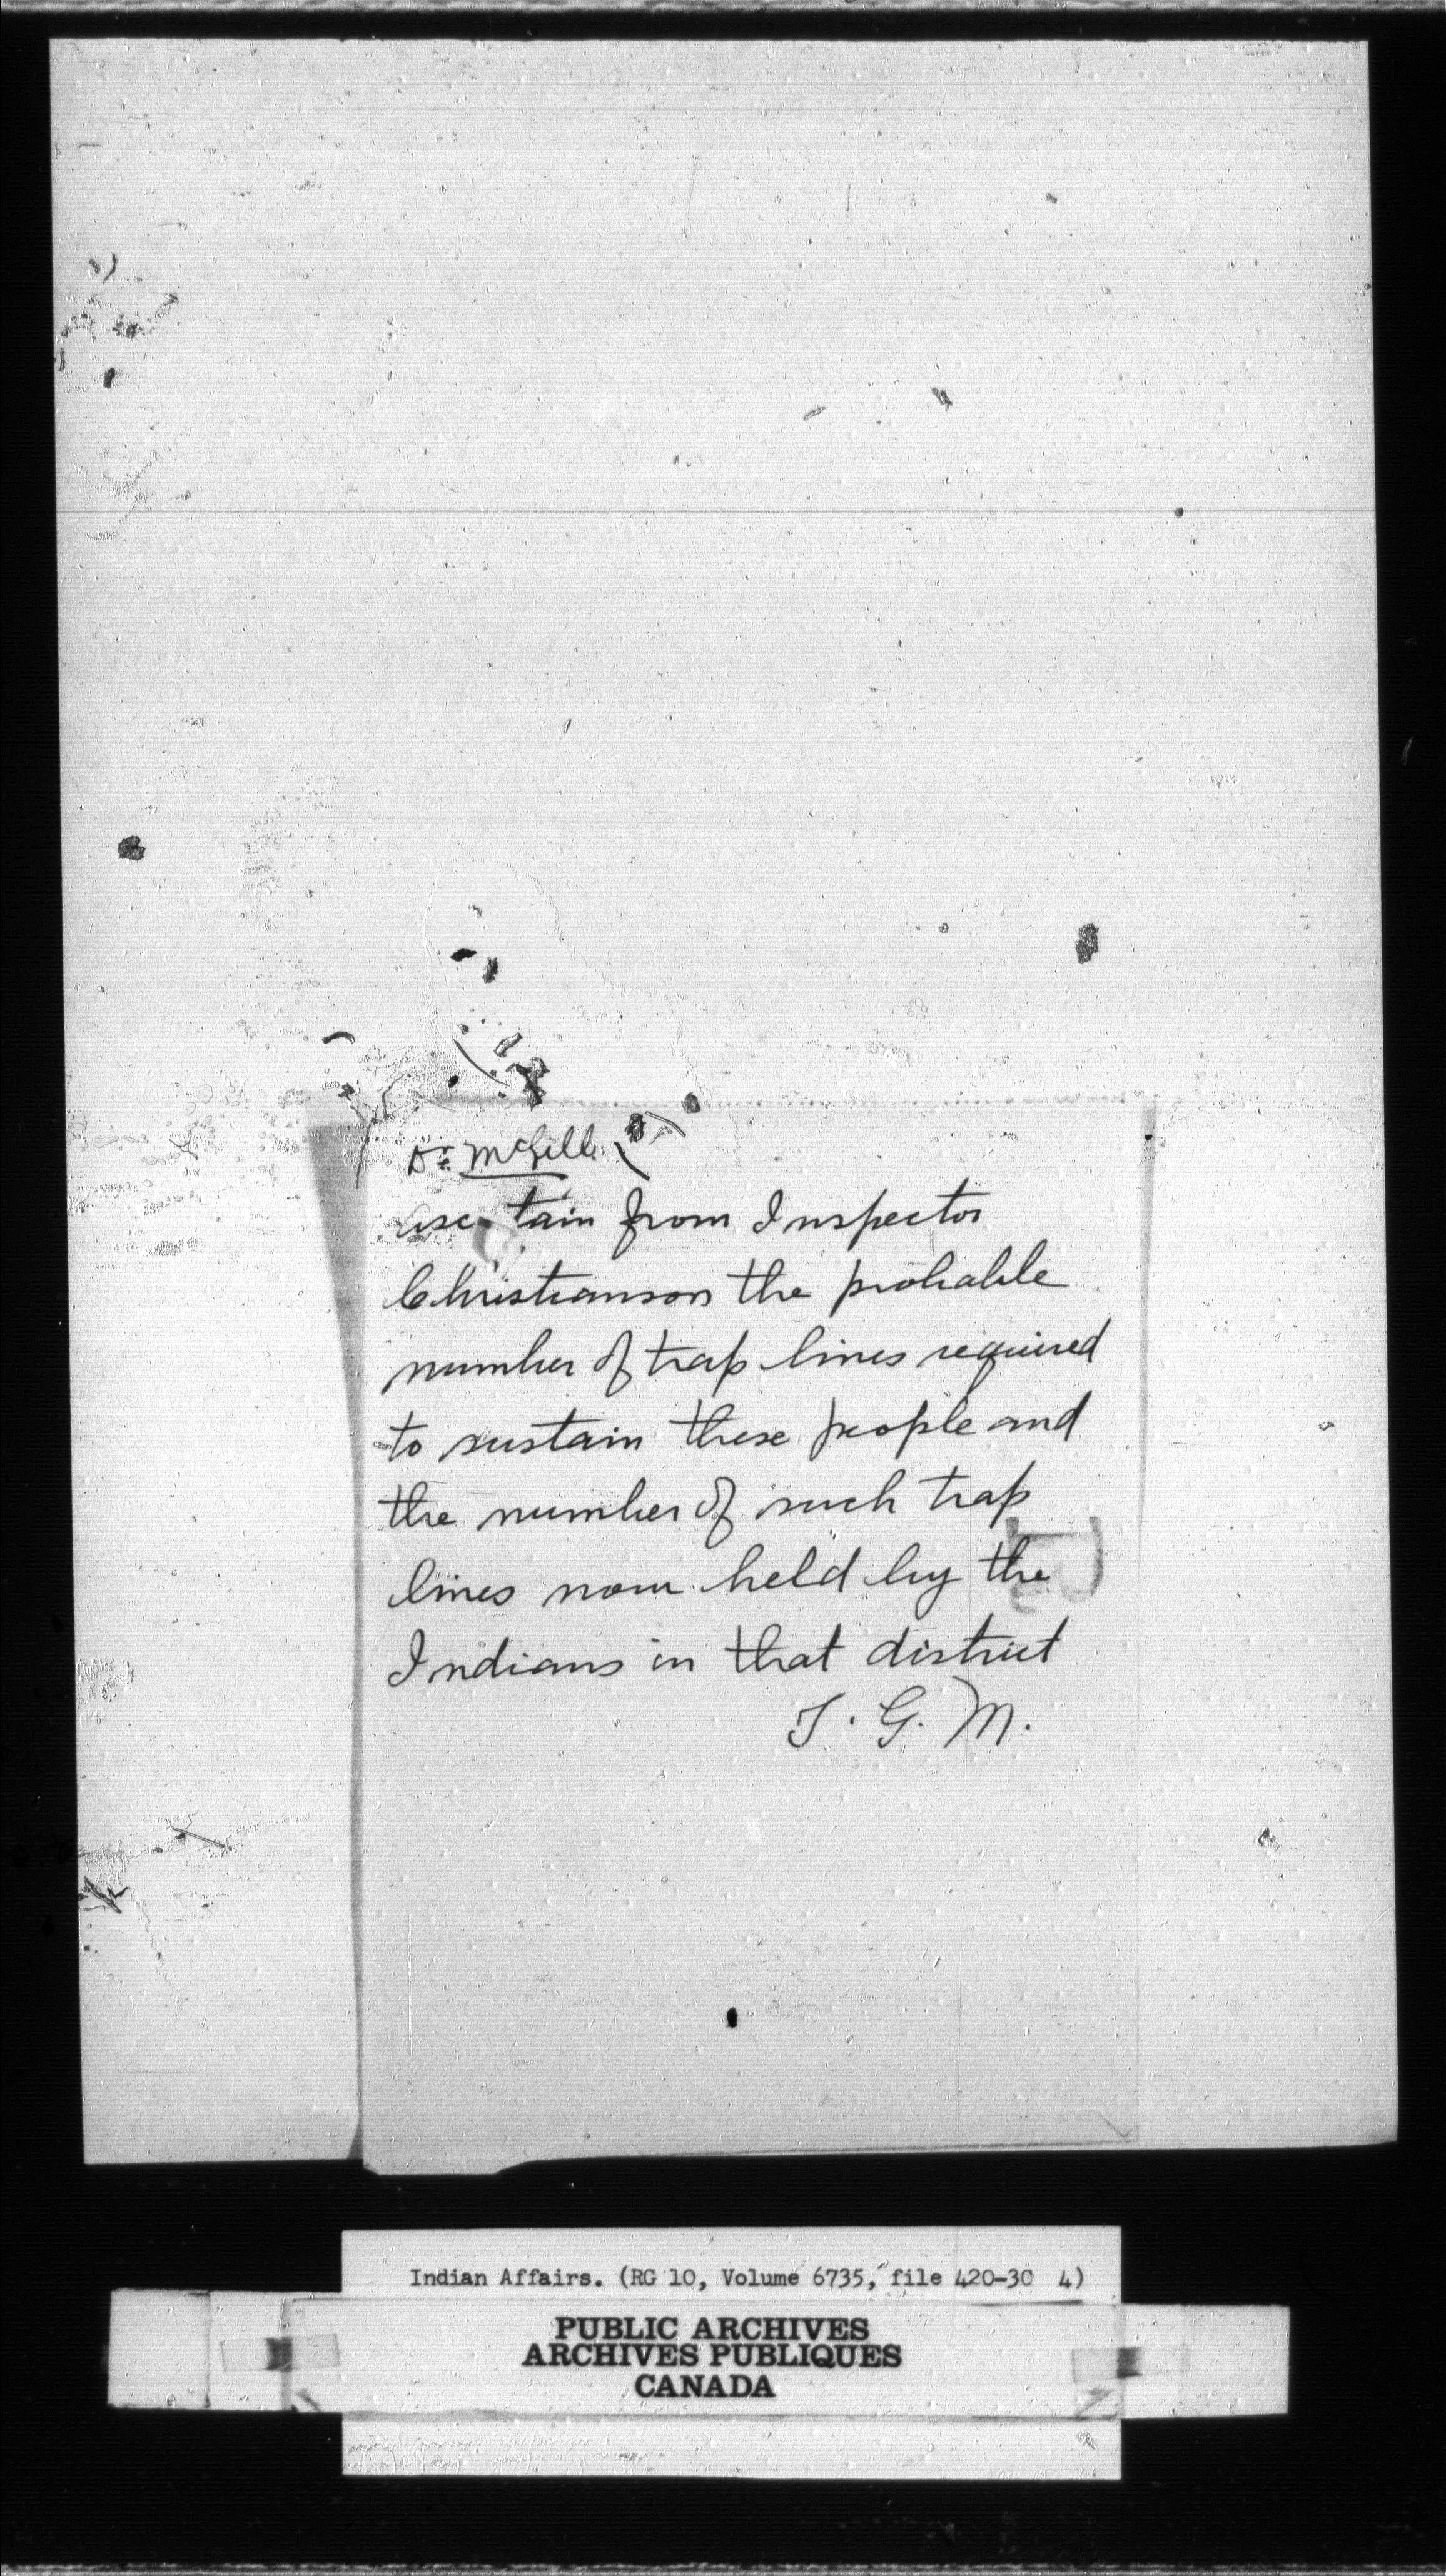 Dr. McGill
ascertain from Inspector
Christianson the probable
number of trap lines required
to sustain these people and
the number of such trap
lines now held by the
Indians in that district
T. G. M.
Indian Affairs. (RG 10, Volume 6735, file 420-30 4)
PUBLIC ARCHIVES
ARCHIVES PUBLIQUES
CANADA